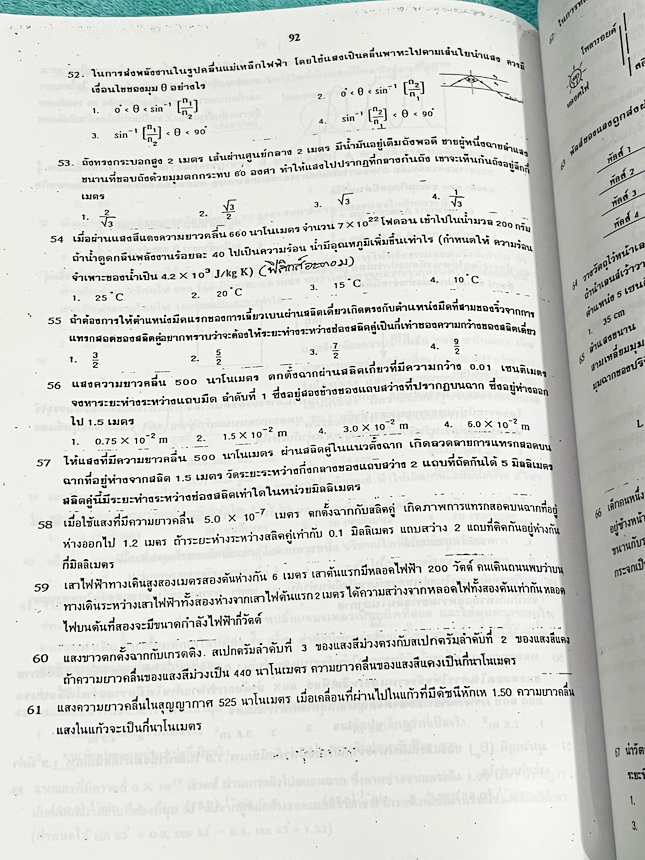 92
52. ในการส่งพลังงานในรูปคลื่นแม่เหล็กไฟฟ้า โดยใช้แสงเป็นคลื่นพาหะไปตามเส้นใยนำแสง ควรมี
เงื่อนไขของมุม θ อย่างไร
1. 0° < θ < sin⁻¹ [n₁/n₂] 2. 0° < θ < sin⁻¹ [n₂/n₁]
3. sin⁻¹ [n₁/n₂] < θ < 90° 4. sin⁻¹ [n₂/n₁] < θ < 90°
53. ถังทรงกระบอกสูง 2 เมตร เส้นผ่านศูนย์กลาง 2 เมตร มีน้ำมันอยู่เต็มถังพอดี ชายผู้หนึ่งฉายลำแสง
ขนานที่ขอบถังด้วยมุมตกกระทบ 60 องศา ทำให้แสงไปปรากฏที่กลางก้นถัง เขาจะเห็นก้นถังอยู่ลึกกี่
เมตร
1. 2/√3 2. √3/2 3. √3 4. 1/√3
54 เมื่อผ่านแสงสีแดงความยาวคลื่น 660 นาโนเมตร จำนวน 7 × 10²² โฟตอน เข้าไปในน้ำมวล 200 กรัม
ถ้าน้ำดูดกลืนพลังงานร้อยละ 40 ไปเป็นความร้อน น้ำมีอุณหภูมิเพิ่มขึ้นเท่าไร (กำหนดให้ ความร้อน
จำเพาะของน้ำเป็น 4.2 × 10³ J/kg K) (ฟิสิกส์อะตอม)
1. 25°C 2. 20°C 3. 15°C 4. 10°C
55 ถ้าต้องการให้ตำแหน่งมืดแรกของการเลี้ยวเบนผ่านสลิตเดี่ยวเกิดตรงกับตำแหน่งมืดที่สามของริ้วจากการ
แทรกสอดของสลิตคู่อยากทราบว่าจะต้องให้ระยะห่างระหว่างช่องสลิตคู่เป็นกี่เท่าของความกว้างของสลิตเดี่ยว
1. 3/2 2. 5/2 3. 7/2 4. 9/2
56 แสงความยาวคลื่น 500 นาโนเมตร ตกตั้งฉากผ่านสลิตเดี่ยวที่มีความกว้าง 0.01 เซนติเมตร
จงหาระยะห่างระหว่างแถบมืด ลำดับที่ 1 ซึ่งอยู่สองข้างของแถบสว่างที่ปรากฏบนฉาก ซึ่งอยู่ห่างออก
ไป 1.5 เมตร
1. 0.75 × 10⁻² m 2. 1.5 × 10⁻² m 4. 3.0 × 10⁻² m 4. 6.0 × 10⁻² m
57 ให้แสงที่มีความยาวคลื่น 500 นาโนเมตร ผ่านสลิตคู่ในแนวตั้งฉาก เกิดลวดลายการแทรกสอดบน
ฉากที่อยู่ห่างจากสลิต 1.5 เมตร วัดระยะระหว่างกึ่งกลางของแถบสว่าง 2 แถบที่ถัดกันได้ 5 มิลลิเมตร
สลิตคู่นี้มีระยะห่างระหว่างช่องสลิตเท่าใดในหน่วยมิลลิเมตร
58 เมื่อใช้แสงที่มีความยาวคลื่น 5.0 × 10⁻⁷ เมตร ตกตั้งฉากกับสลิตคู่ เกิดภาพการแทรกสอดบนฉากที่อยู่
ห่างออกไป 1.2 เมตร ถ้าระยะห่างระหว่างสลิตคู่เท่ากับ 0.1 มิลลิเมตร แถบสว่าง 2 แถบที่ติดกันอยู่ห่างกัน
กี่มิลลิเมตร
59 เสาไฟฟ้าทางเดินสูงสองเมตรสองต้นห่างกัน 6 เมตร เสาต้นแรกมีหลอดไฟฟ้า 200 วัตต์ คนเดินถนนพบว่าบน
ทางเดินระหว่างเสาไฟฟ้าทั้งสองห่างจากเสาไฟต้นแรก 2 เมตร ได้ความสว่างจากหลอดไฟทั้งสองต้นเท่ากัน หลอด
ไฟบนต้นที่สองจะมีขนาดกำลังไฟฟ้ากี่วัตต์
60 แสงขาวตกตั้งฉากกับเกรตติง. สเปกตรัมลำดับที่ 3 ของแสงสีม่วงตรงกับสเปกตรัมลำดับที่ 2 ของแสงสีแดง
ถ้าความยาวคลื่นของแสงสีม่วงเป็น 440 นาโนเมตร ความยาวคลื่นของแสงสีแดงเป็นกี่นาโนเมตร
61 แสงความยาวคลื่นในสุญญากาศ 525 นาโนเมตร เมื่อเคลื่อนที่ผ่านไปในแก้วที่มีดัชนีหักเห 1.50 ความยาวคลื่น
แสงในแก้วจะเป็นกี่นาโนเมตร
โพลารอยด์
หลอดไฟ
พัลส์ 1
พัลส์ 2
พัลส์ 3
พัลส์ 4
1. 35 cm
65 ลำแสงขนาน
66 เด็กคนหนึ่ง
1.
3.